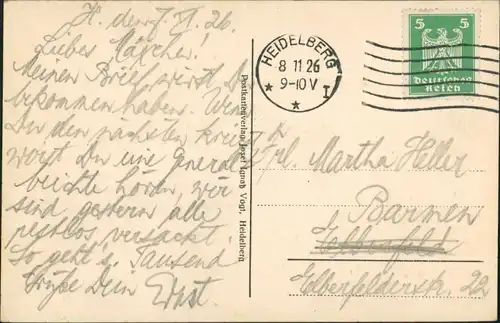 H. den 7. XI. 26.
Liebes
Meinen Brief wirst Du
bekommen haben. Wenn
Du den nächsten kriegst,
wirst Du eine General
beichte hören, wir
sind gestern alle
restlos versackt.
So geht's. Tausend
Grüße Dein Ernst.
Postkartenverlag Josef Ignatz Vogt, Heidelberg
HEIDELBERG
8 11 26
9-10 V
* * * I
5 5
Deutsches
Reich
Frl. Martha Heller
Barmen
Elberfeld
Elberfelderstr. 22